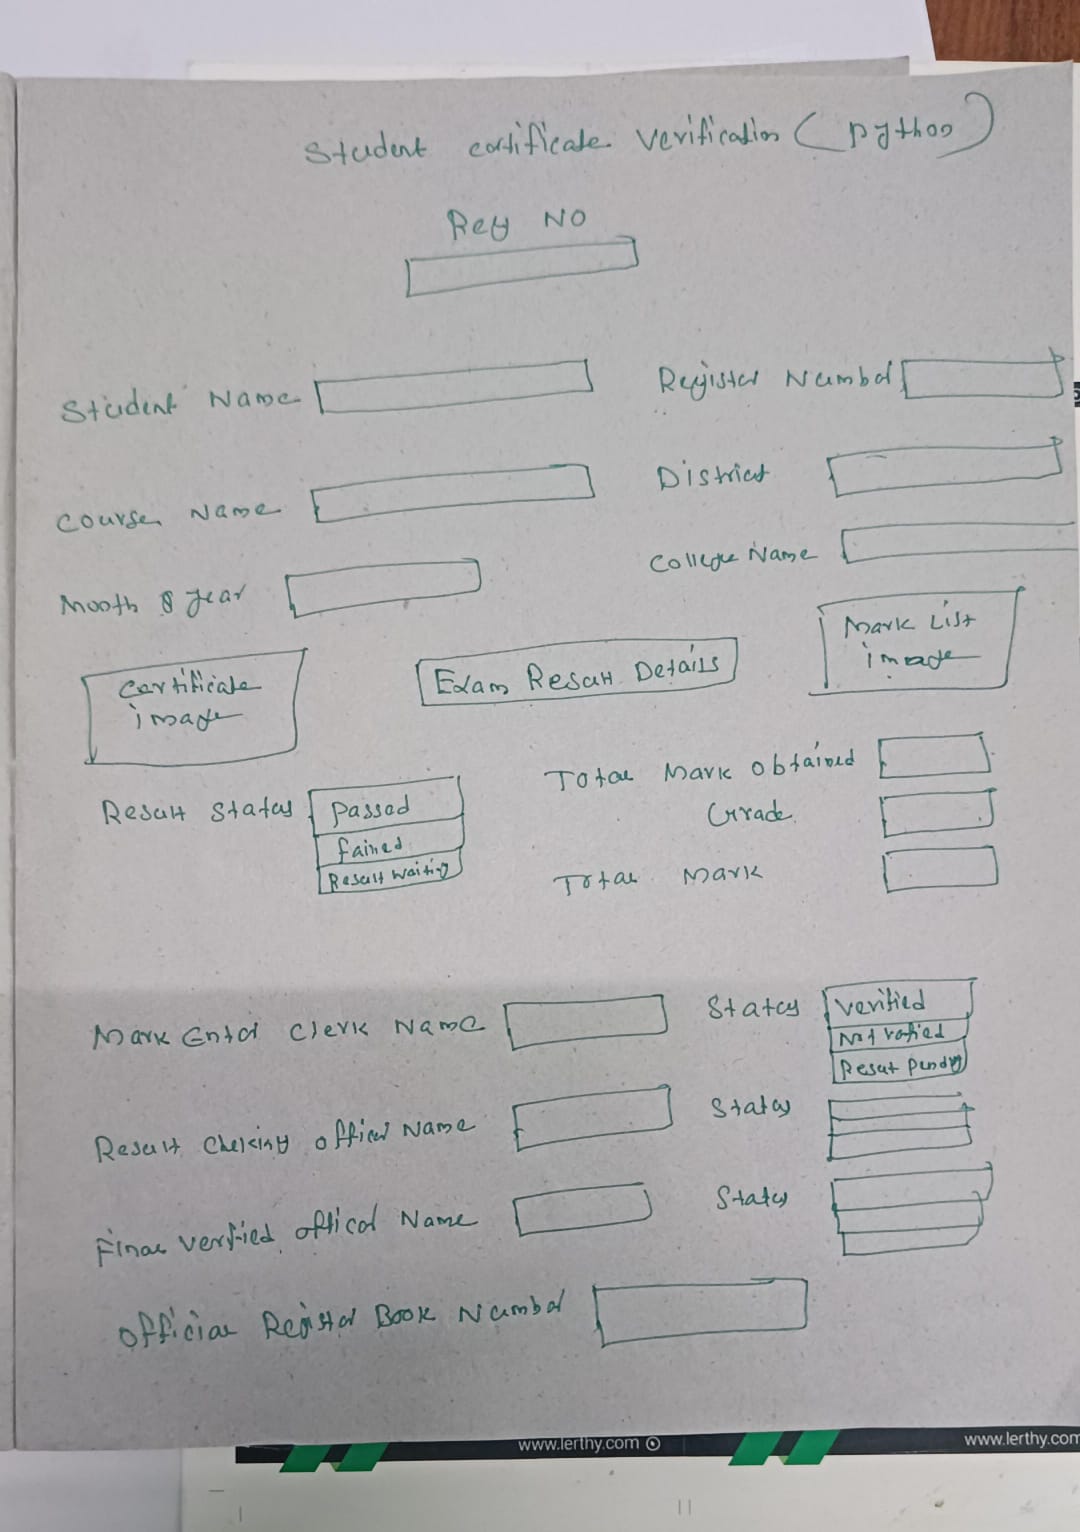 Student certificate verification (python)
Reg NO
Student Name
Register Number
Course Name
District
Month & year
College Name
Certificate
image
Exam Result Details
Mark List
image
Result status
Passed
Failed
Result waiting
Total Mark obtained
Grade
Total Mark
Mark Enter Clerk Name
Status
Verified
Not verified
Result Pending
Result Checking officer Name
Status
Final Verified officer Name
Status
Official Register Book Number
www.lerthy.com
www.lerthy.com